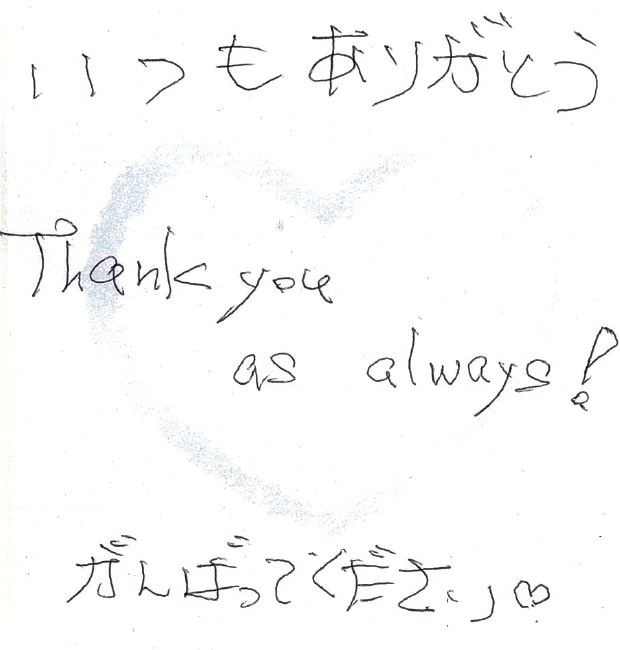 いつもありがとう
Thank you
as always!
がんばってください♡